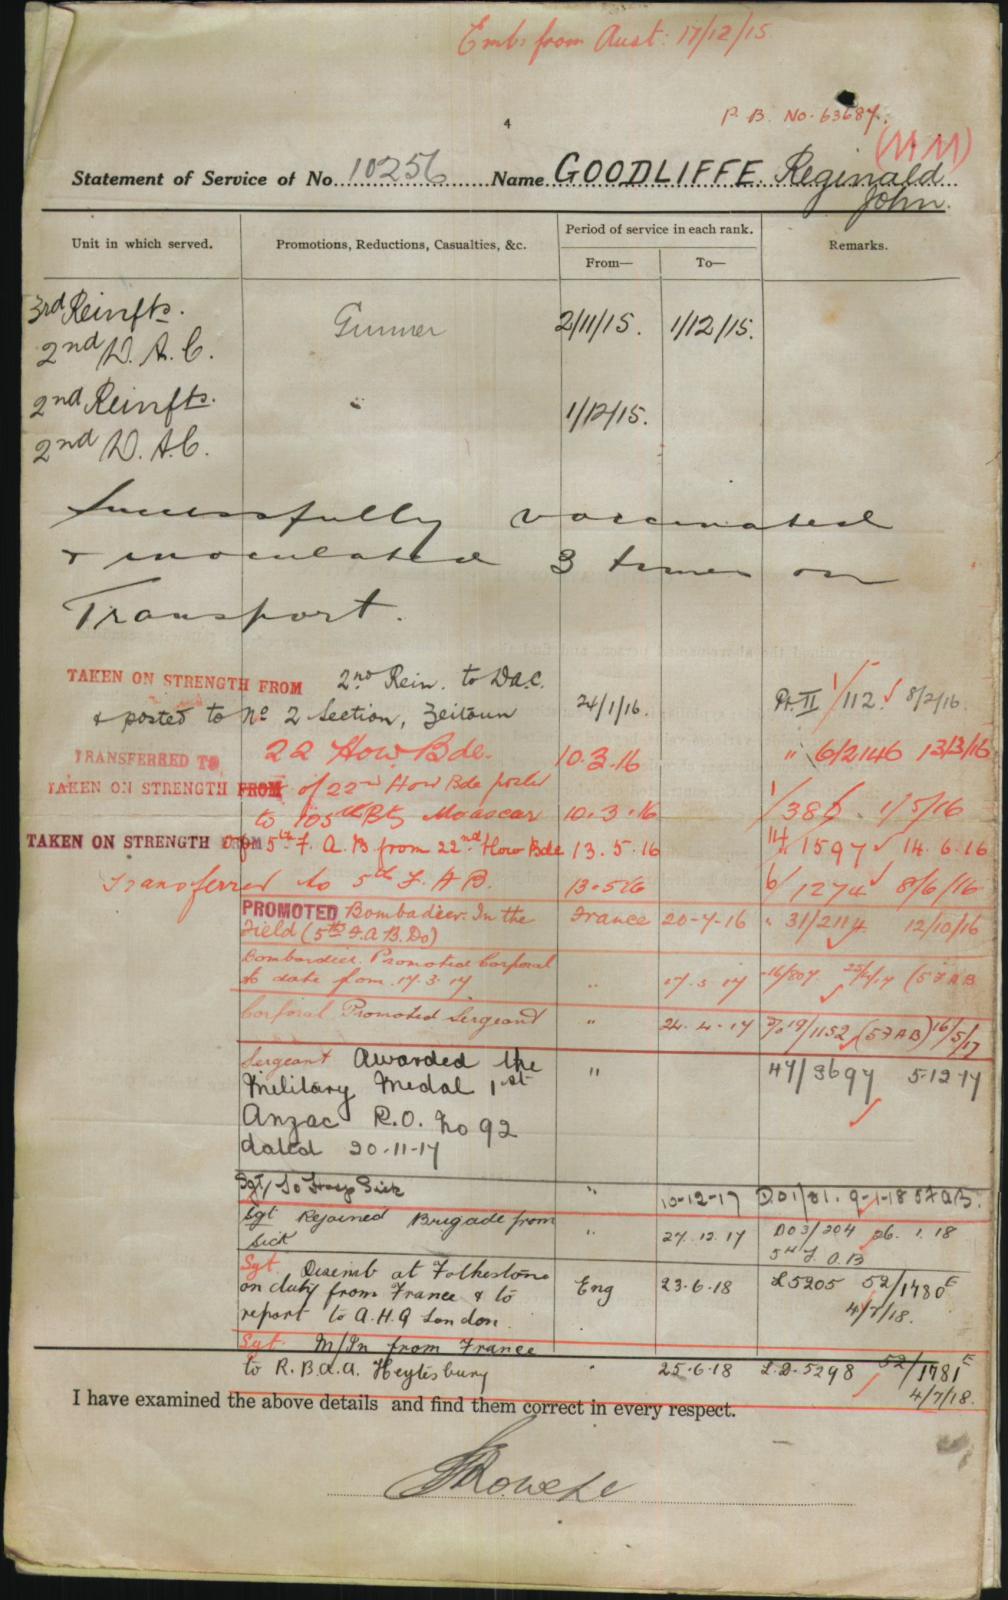 Emb: from Aust: 17/12/15
4
P. B. No. 63687.
(MM)
Statement of Service of No. 10256 Name GOODLIFFE Reginald
John.
Unit in which served. Promotions, Reductions, Casualties, &c. Period of service in each rank. Remarks.
From— To—
3rd Reinfts. Gunner 2/11/15. 1/12/15.
2nd D. A. C.
2nd Reinfts. 1/12/15.
2nd D. A. C.
Sucessfully vaccinated
+ inoculated 3 times on
Transport.
TAKEN ON STRENGTH FROM 2nd Rein. to D.A.C.
+ posted to No 2 Section, Zeitoun 24/1/16. Pt. II 1/112. 8/2/16.
TRANSFERRED TO 22 How. Bde. 10.3.16 " 6/2146 13/3/16
TAKEN ON STRENGTH FROM of 22nd How Bde posted
to 105th Bty Moascar 10.3.16 1/5/16
TAKEN ON STRENGTH FROM of 5th F.A.B from 22nd How Bde 13.5.16 1597 14.6.16
Transferred to 5th F.A.B. 13.5.16 6/1274 8/6/16
PROMOTED Bombadier. In the France 20-7-16 " 31/2114 12/10/16
Field (5th F.A.B. Do)
Bombardier. Promoted Corporal
to date from 17.3.17 " 17.3.17 16/807 (5 FAB
Corporal Promoted Sergeant " 24.4.17 19/1152 (5 FAB) 16/5/17
Sergeant Awarded the " 47/3697 5.12.17
Military Medal 1st
Anzac R.O. No 92
dated 20-11-17
Sgt/ To Hosp Sick " 10-12-17 DO1/81. 9-1-18 5 F.A.B.
Sgt Rejoined Brigade from " 27.12.17 DO3/204 26.1.18
Sick 5th F.A.B
Sgt. Disemb at Folkestone Eng 23.6.18 L5205 52/1780E
on duty from France & to 4/7/18.
report to A.H.Q London.
Sgt. M/In from France
to R.B.A.A. Heytesbury " 25.6.18 L.D.5298 52/1781E
4/7/18.
I have examined the above details and find them correct in every respect.